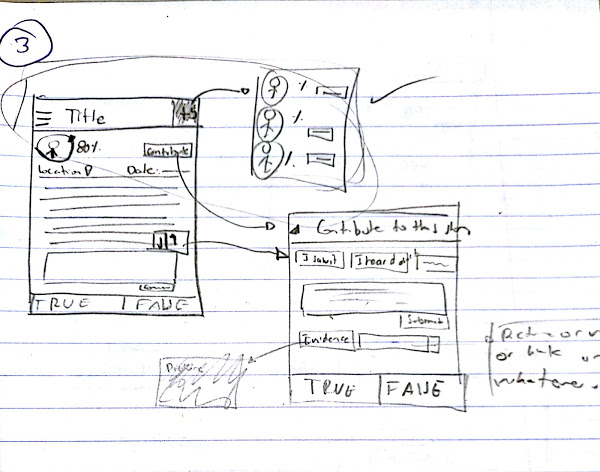 3
Title
+5
80%
Contribute
Location
Date:
TRUE
FALSE
%
%
%
Contribute to this story
I saw it
I heard of it
Submit
Evidence
TRUE
FALSE
or
whatever.